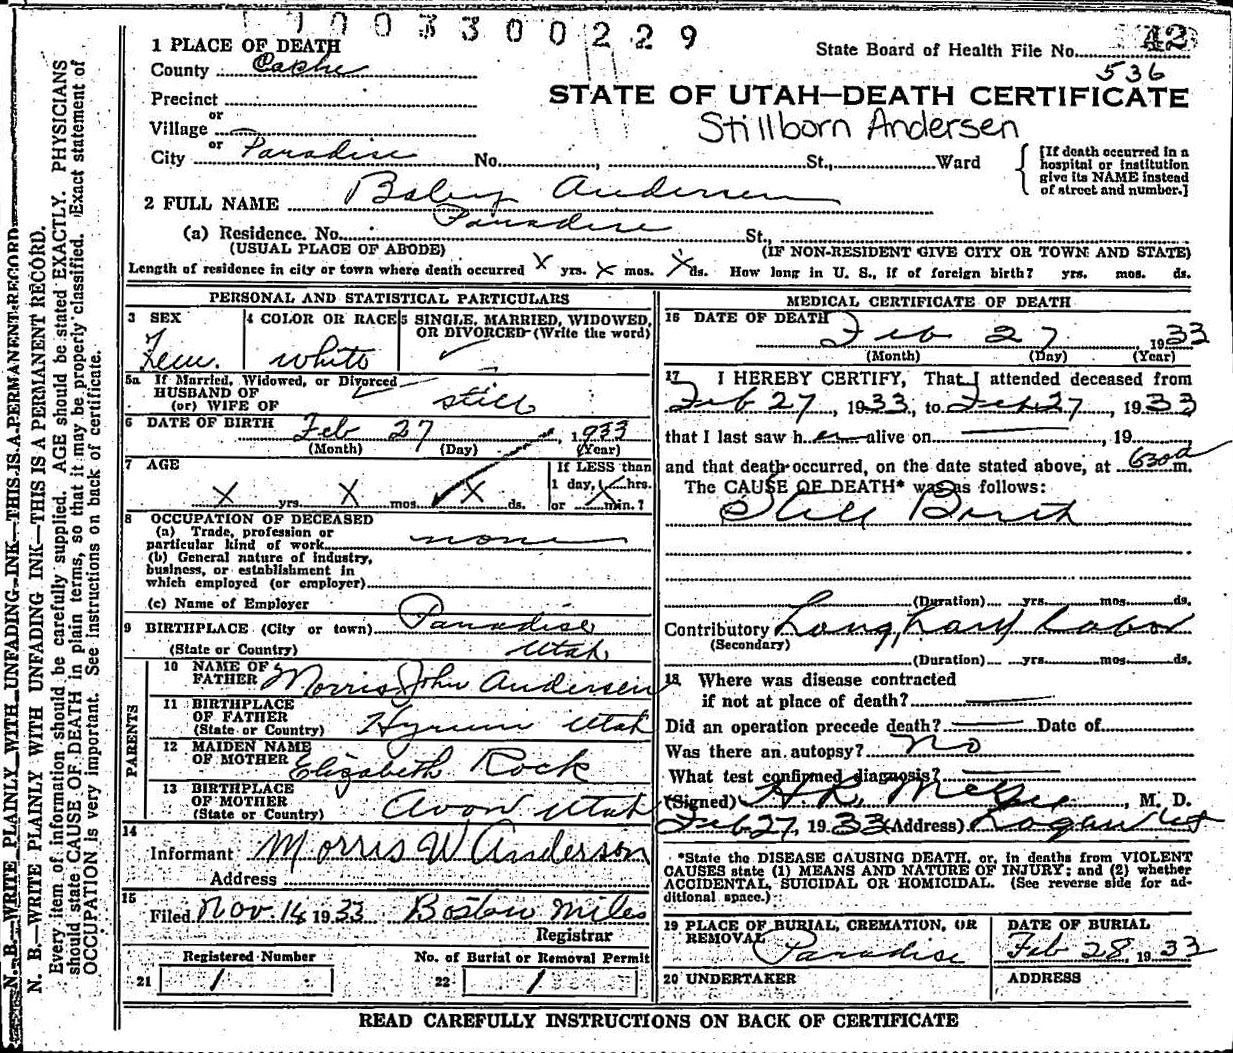 1003300229
State Board of Health File No. 42
536
1 PLACE OF DEATH
County Cache
STATE OF UTAH—DEATH CERTIFICATE
Precinct
or
Village
Stillborn Andersen
or
City Paradise No. , St., Ward
[If death occurred in a
hospital or institution
give its NAME instead
of street and number.]
2 FULL NAME Baby Andersen
(a) Residence. No. Paradise St.,
(USUAL PLACE OF ABODE) (IF NON-RESIDENT GIVE CITY OR TOWN AND STATE)
Length of residence in city or town where death occurred X yrs. X mos. X ds. How long in U. S., if of foreign birth? yrs. mos. ds.
PERSONAL AND STATISTICAL PARTICULARS
3 SEX
Fem.
4 COLOR OR RACE
white
5 SINGLE, MARRIED, WIDOWED,
OR DIVORCED (Write the word)
5a If Married, Widowed, or Divorced
HUSBAND OF
(or) WIFE OF still
6 DATE OF BIRTH Feb 27, 1933
(Month) (Day) (Year)
7 AGE
X yrs. X mos. X ds.
If LESS than
1 day, hrs.
or X min.?
8 OCCUPATION OF DECEASED
(a) Trade, profession or
particular kind of work none
(b) General nature of industry,
business, or establishment in
which employed (or employer)
(c) Name of Employer
9 BIRTHPLACE (City or town) Paradise
(State or Country) Utah
PARENTS
10 NAME OF
FATHER Morris John Andersen
11 BIRTHPLACE
OF FATHER
(State or Country) Hyrum Utah
12 MAIDEN NAME
OF MOTHER Elizabeth Rock
13 BIRTHPLACE
OF MOTHER
(State or Country) Avon Utah
14
Informant Morris W Anderson
Address
15
Filed Nov. 14 1933 Boston Miles
Registrar
Registered Number No. of Burial or Removal Permit
21 1 22 1
MEDICAL CERTIFICATE OF DEATH
16 DATE OF DEATH Feb 27 1933
(Month) (Day) (Year)
17 I HEREBY CERTIFY, That I attended deceased from
Feb 27, 1933, to Feb 27, 1933
that I last saw her alive on , 19
and that death occurred, on the date stated above, at 630a m.
The CAUSE OF DEATH* was as follows:
Still Birth
(Duration) yrs. mos. ds.
Contributory Long, hard labor
(Secondary)
(Duration) yrs. mos. ds.
18 Where was disease contracted
if not at place of death?
Did an operation precede death? Date of
Was there an autopsy? no
What test confirmed diagnosis?
(Signed) H.R. McGee, M. D.
Feb 27, 1933 (Address) Logan Ut
*State the DISEASE CAUSING DEATH, or, in deaths from VIOLENT
CAUSES state (1) MEANS AND NATURE OF INJURY; and (2) whether
ACCIDENTAL, SUICIDAL OR HOMICIDAL. (See reverse side for ad-
ditional space.)
19 PLACE OF BURIAL, CREMATION, OR
REMOVAL
Paradise
DATE OF BURIAL
Feb 28, 1933
20 UNDERTAKER
ADDRESS
READ CAREFULLY INSTRUCTIONS ON BACK OF CERTIFICATE
N. B.—WRITE PLAINLY WITH UNFADING INK—THIS IS A PERMANENT RECORD
N. B.—WRITE PLAINLY WITH UNFADING INK—THIS IS A PERMANENT RECORD.
Every item of information should be carefully supplied. AGE should be stated EXACTLY. PHYSICIANS
should state CAUSE OF DEATH in plain terms, so that it may be properly classified. Exact statement of
OCCUPATION is very important. See instructions on back of certificate.